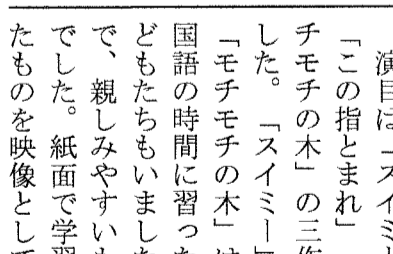 演目は「スイミ
「この指とまれ」
チモチの木」の三作
した。「スイミー」
「モチモチの木」は
国語の時間に習った
どもたちもいました
で、親しみやすいも
でした。紙面で学習
たものを映像として